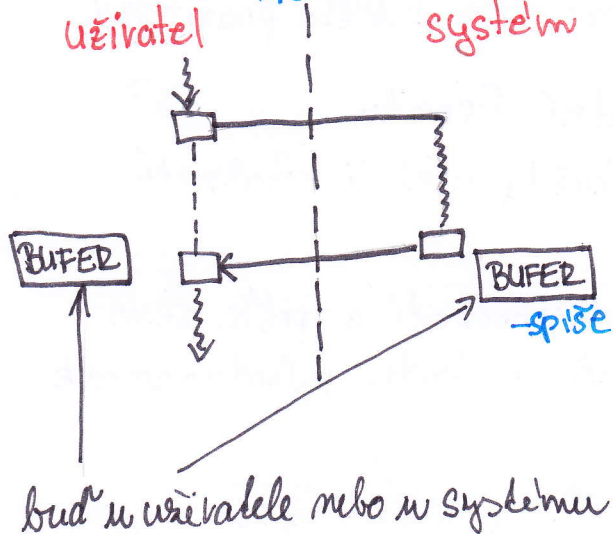 uživatel
systém
BUFER
BUFER
-spíše
buď u uživatele nebo u systému